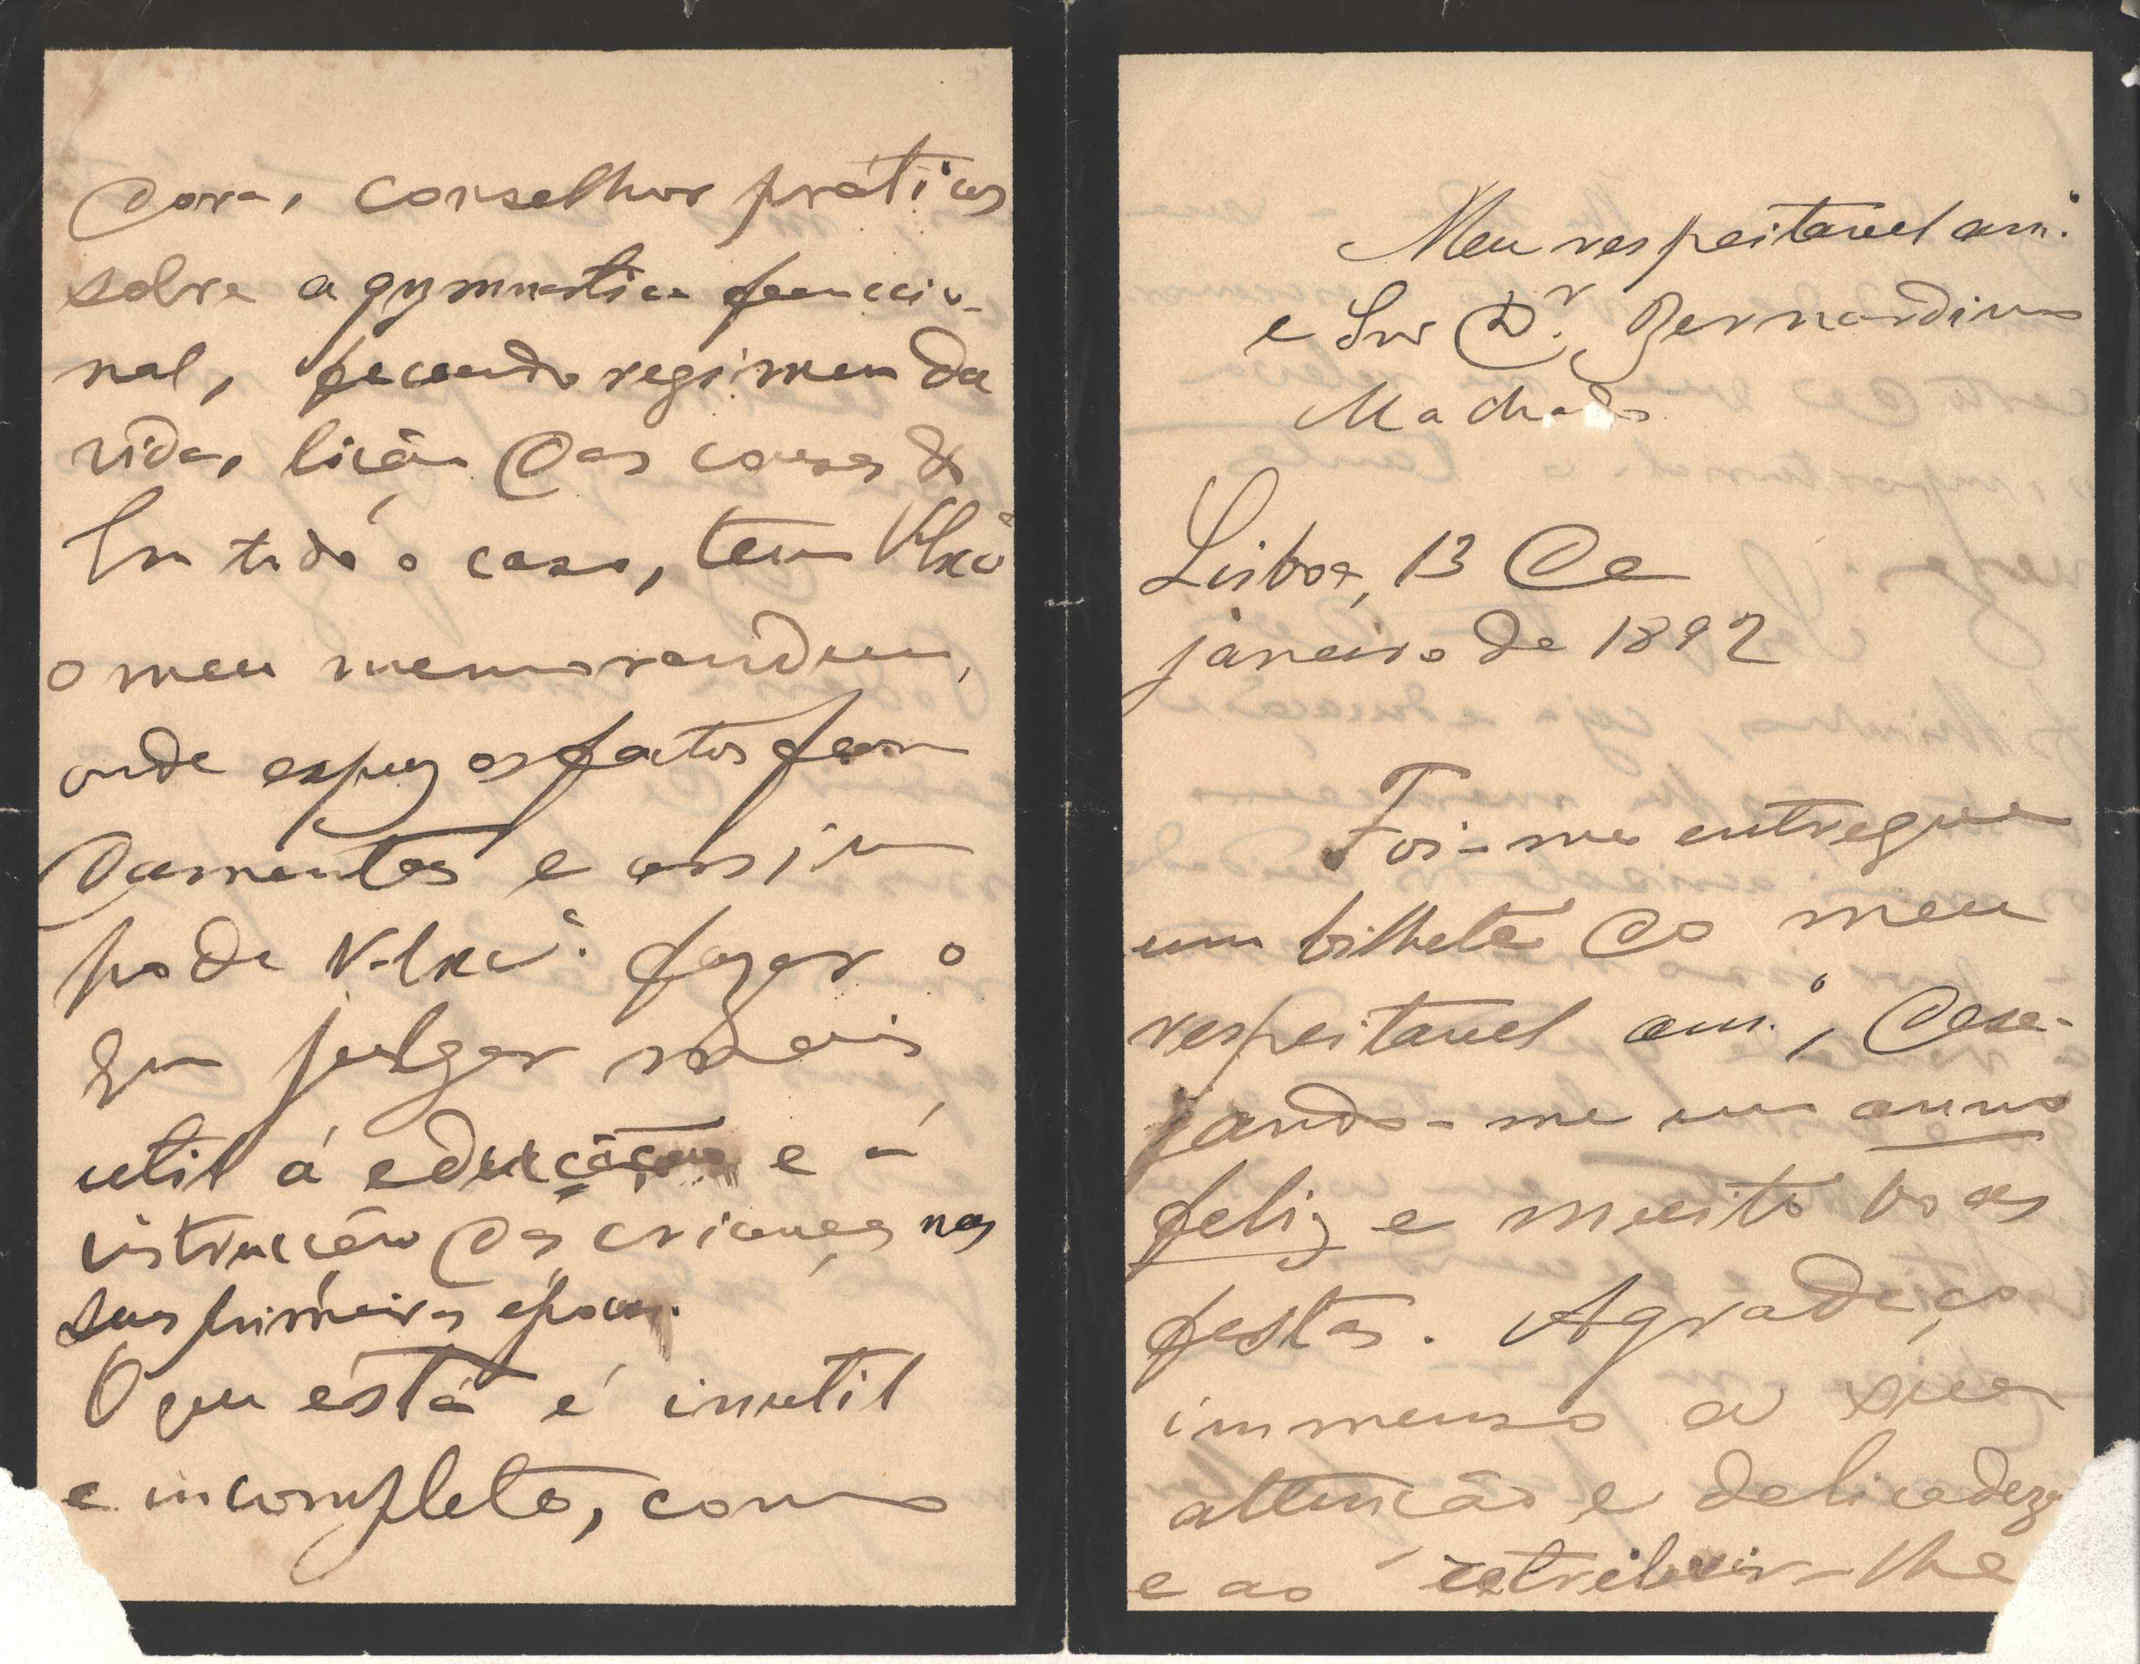 Meu respeitavel am.º
e Snr Dr. Bernardino
Machado
Lisboa, 13 de
janeiro de 1892
Foi-me entregue
um bilhete do meu
respeitavel am.º, dese-
jando-me um anno
feliz e muito boas
festas. Agradeço
immenso a sua
attenção e delicadeza
e ao retribuir-lhe
dora, conselhos práticos
sobre a gymnastica funccio-
nal, fecundo regimen da
vida, lição das cousas &
Em todo o caso, tem V. Excª
o meu memorandum,
onde expuz os factos fun
damentos e assim
pode V. Excª fazer o
que julgar mais
util á educação e á
instrucção das crianças nas
suas primeiras epocas.
O que está é inutil
e incompleto, como